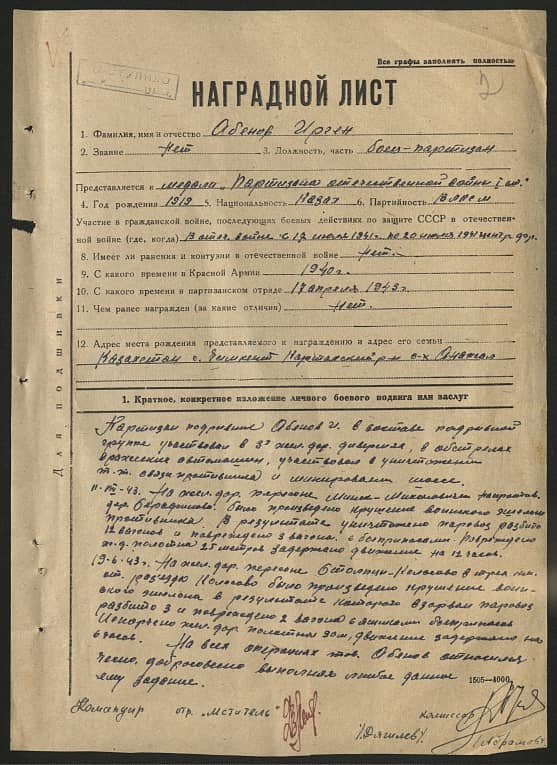 Все графы заполнять полностью
2
НАГРАДНОЙ ЛИСТ
1. Фамилия, имя и отчество Абенов Ирген
2. Звание Нет 3. Должность, часть боец-партизан
Представляется к медали „Партизана отечественной войны I ст."
4. Год рождения 1919 5. Национальность Казах 6. Партийность ВЛКСМ
Участие в гражданской войне, последующих боевых действиях по защите СССР и отечествен-
ной войне (где, когда) В отеч. войне с 17 июля 1941г. по 20 июля 1941 центр.
8. Имеет ли ранения и контузии в отечественной войне Нет.
9. С какого времени в Красной Армии 1940г.
10. С какого времени в партизанском отряде 17 апреля 1943г.
11. Чем ранее награжден (за какие отличия) Нет.
12. Адрес места рождения представляемого к награждению и адрес его семьи
Казахстан г. Чимкент р-н с-х
Для подшивки
1. Краткое, конкретное изложение личного боевого подвига или заслуг
Партизан подрывник Абенов И. в составе подрывной
группы участвовал в 3х жел. дор. диверсиях, в обстрелах
вражеских автомашин, участвовал в уничтожении
т.т. связи противника и минировании шоссе.
43. На жел. дор. перегоне Минск-Михановичи
дор. было произведено крушение воинского эшелона
противника. В результате уничтожено паровоз, разбито
12 вагонов и повреждено 3 вагона, с боеприпасами. Повреждено
ж.д. полотна 25 метров задержано движение на 12 часов.
43г. На жел. дор. перегоне Столпцы-Колосово в трех км.
от разъезда Колосово было произведено крушение воин-
ского эшелона в результате которого взорван паровоз
разбито 3 и повреждено 2 вагона с ящиками боеприпасов
Испорчено жел. дор. полотна 30м, движение задержано на
6 часов.
На всех операциях тов. Абенов относился
честно, добросовестно выполнял любое данное
ему задание.
1505—4000
Командир отр. „Мститель" комиссар
/Дяшлев/
/Абрамов/